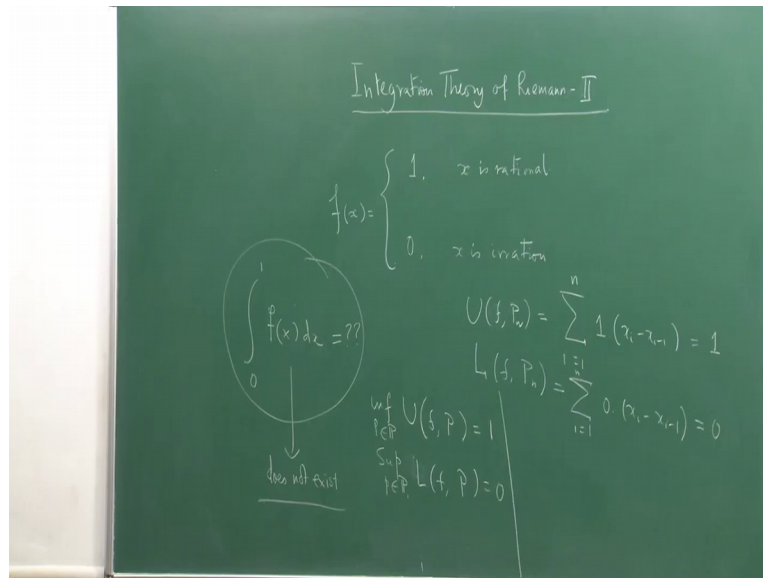 Integration Theory of Riemann - II
f(x) = { 1, x is rational
0, x is irration
∫₀¹ f(x) dx = ??
does not exist
U(f, Pₙ) = ∑ᵢ₌₁ⁿ 1 (xᵢ - xᵢ₋₁) = 1
L(f, Pₙ) = ∑ᵢ₌₁ⁿ 0. (xᵢ - xᵢ₋₁) = 0
inf P∈P U(f, P) = 1
Sup P∈P L(f, P) = 0